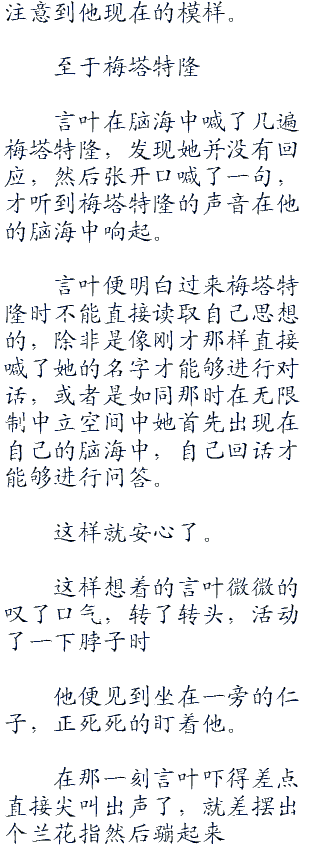 注意到他现在的模样。
至于梅塔特隆
言叶在脑海中喊了几遍
梅塔特隆，发现她并没有回
应，然后张开口喊了一句，
才听到梅塔特隆的声音在他
的脑海中响起。
言叶便明白过来梅塔特
隆时不能直接读取自己思想
的，除非是像刚才那样直接
喊了她的名字才能够进行对
话，或者是如同那时在无限
制中立空间中她首先出现在
自己的脑海中，自己回话才
能够进行问答。
这样就安心了。
这样想着的言叶微微的
叹了口气，转了转头，活动
了一下脖子时
他便见到坐在一旁的仁
子，正死死的盯着他。
在那一刻言叶吓得差点
直接尖叫出声了，就差摆出
个兰花指然后蹦起来